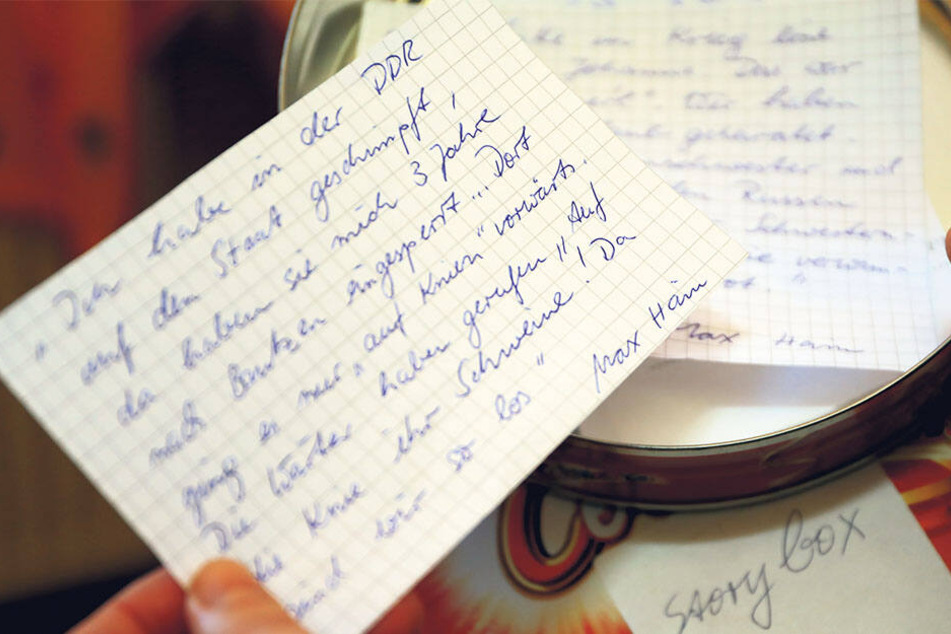 "Ich habe in der DDR
auf den Staat geschimpft,
da haben sie mich 3 Jahre
nach Bautzen eingespert... Dort
ging es nur "auf Knien" vorwärts.
Die Wärter haben gerufen "Auf
die Knie ihr Schweine! Da
sind wir so los" Max Häm
von Krieg
Das war
haben
geheiratet
schwester und
Russen
Schwestern
Max Häm
story box